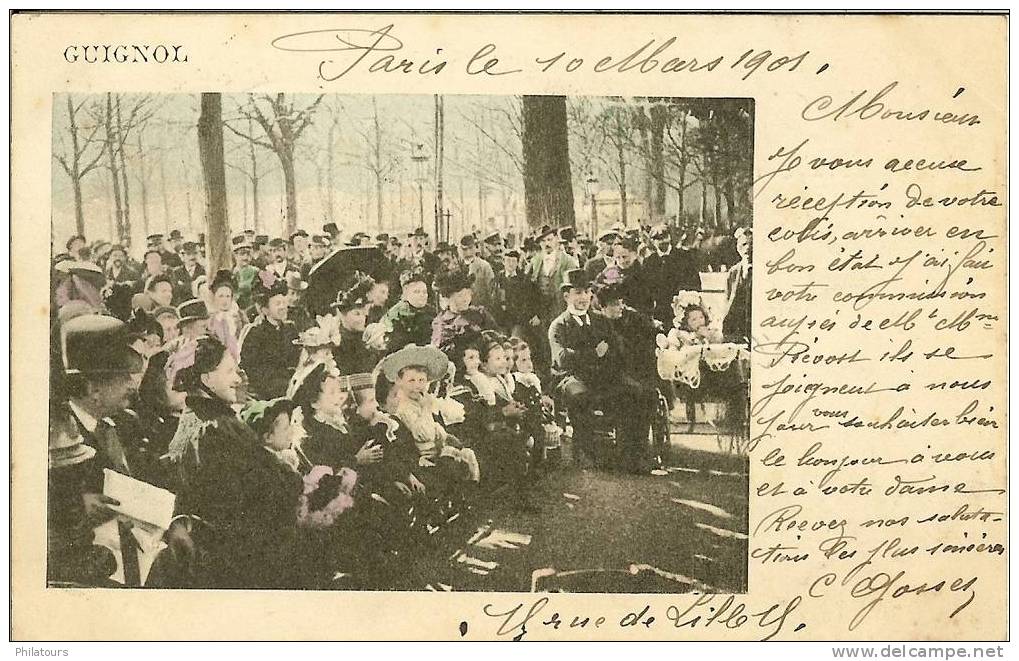 GUIGNOL
Paris le 10 Mars 1901.
Monsieur
Je vous accuse
réception de votre
colis, arriver en
bon état J'ai fait
votre commission
auprés de Mr Mme
Prévost ils se
joigneut à nous
pour vous souhaiter bien
le bonjour à vous
et à votre dame
Recevez nos saluta-
tions les plus sincères
C Gosset
rue de Lille
Philatours
www.delcampe.net